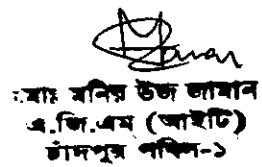 মোঃ মনির উজ জামান
এ.জি.এম (আইটি)
চাঁদপুর পবিস-১